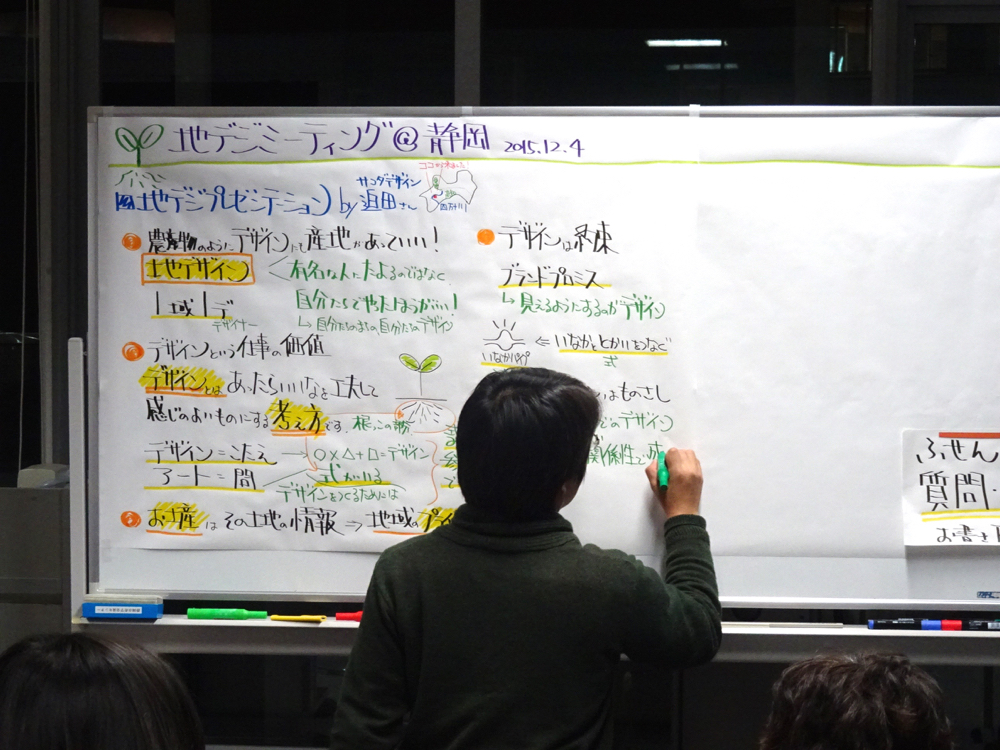 地デジミーティング@静岡 2015.12.4
地デジプレゼンテーション by サコダデザイン 迫田さん
四万十川
農産物のようにデザインにも産地があっていい!
土地デザイン
有名な人にたよるのではなく
自分たちでやったほうがいい!
↳ 自分たちのまちの自分たちのデザイン
1域1デ
デザイナー
デザインという仕事の価値
デザインとは あったらいいなを工夫して
感じのよいものにする 考え方です。
根っこの部分
デザイン=こたえ → ○×△+□=デザイン
アート=問
式がいる
デザインをつくるためには
お土産はその土地の情報 ⇒ 地域の
デザインは約束
ブランドプロミス
↳ 見えるようにするのがデザイン
いなかパイプ ⇐ いなかととかいをつなぐ
式
はものさし
のデザイン
関係性で
ふせん
質問
お書き